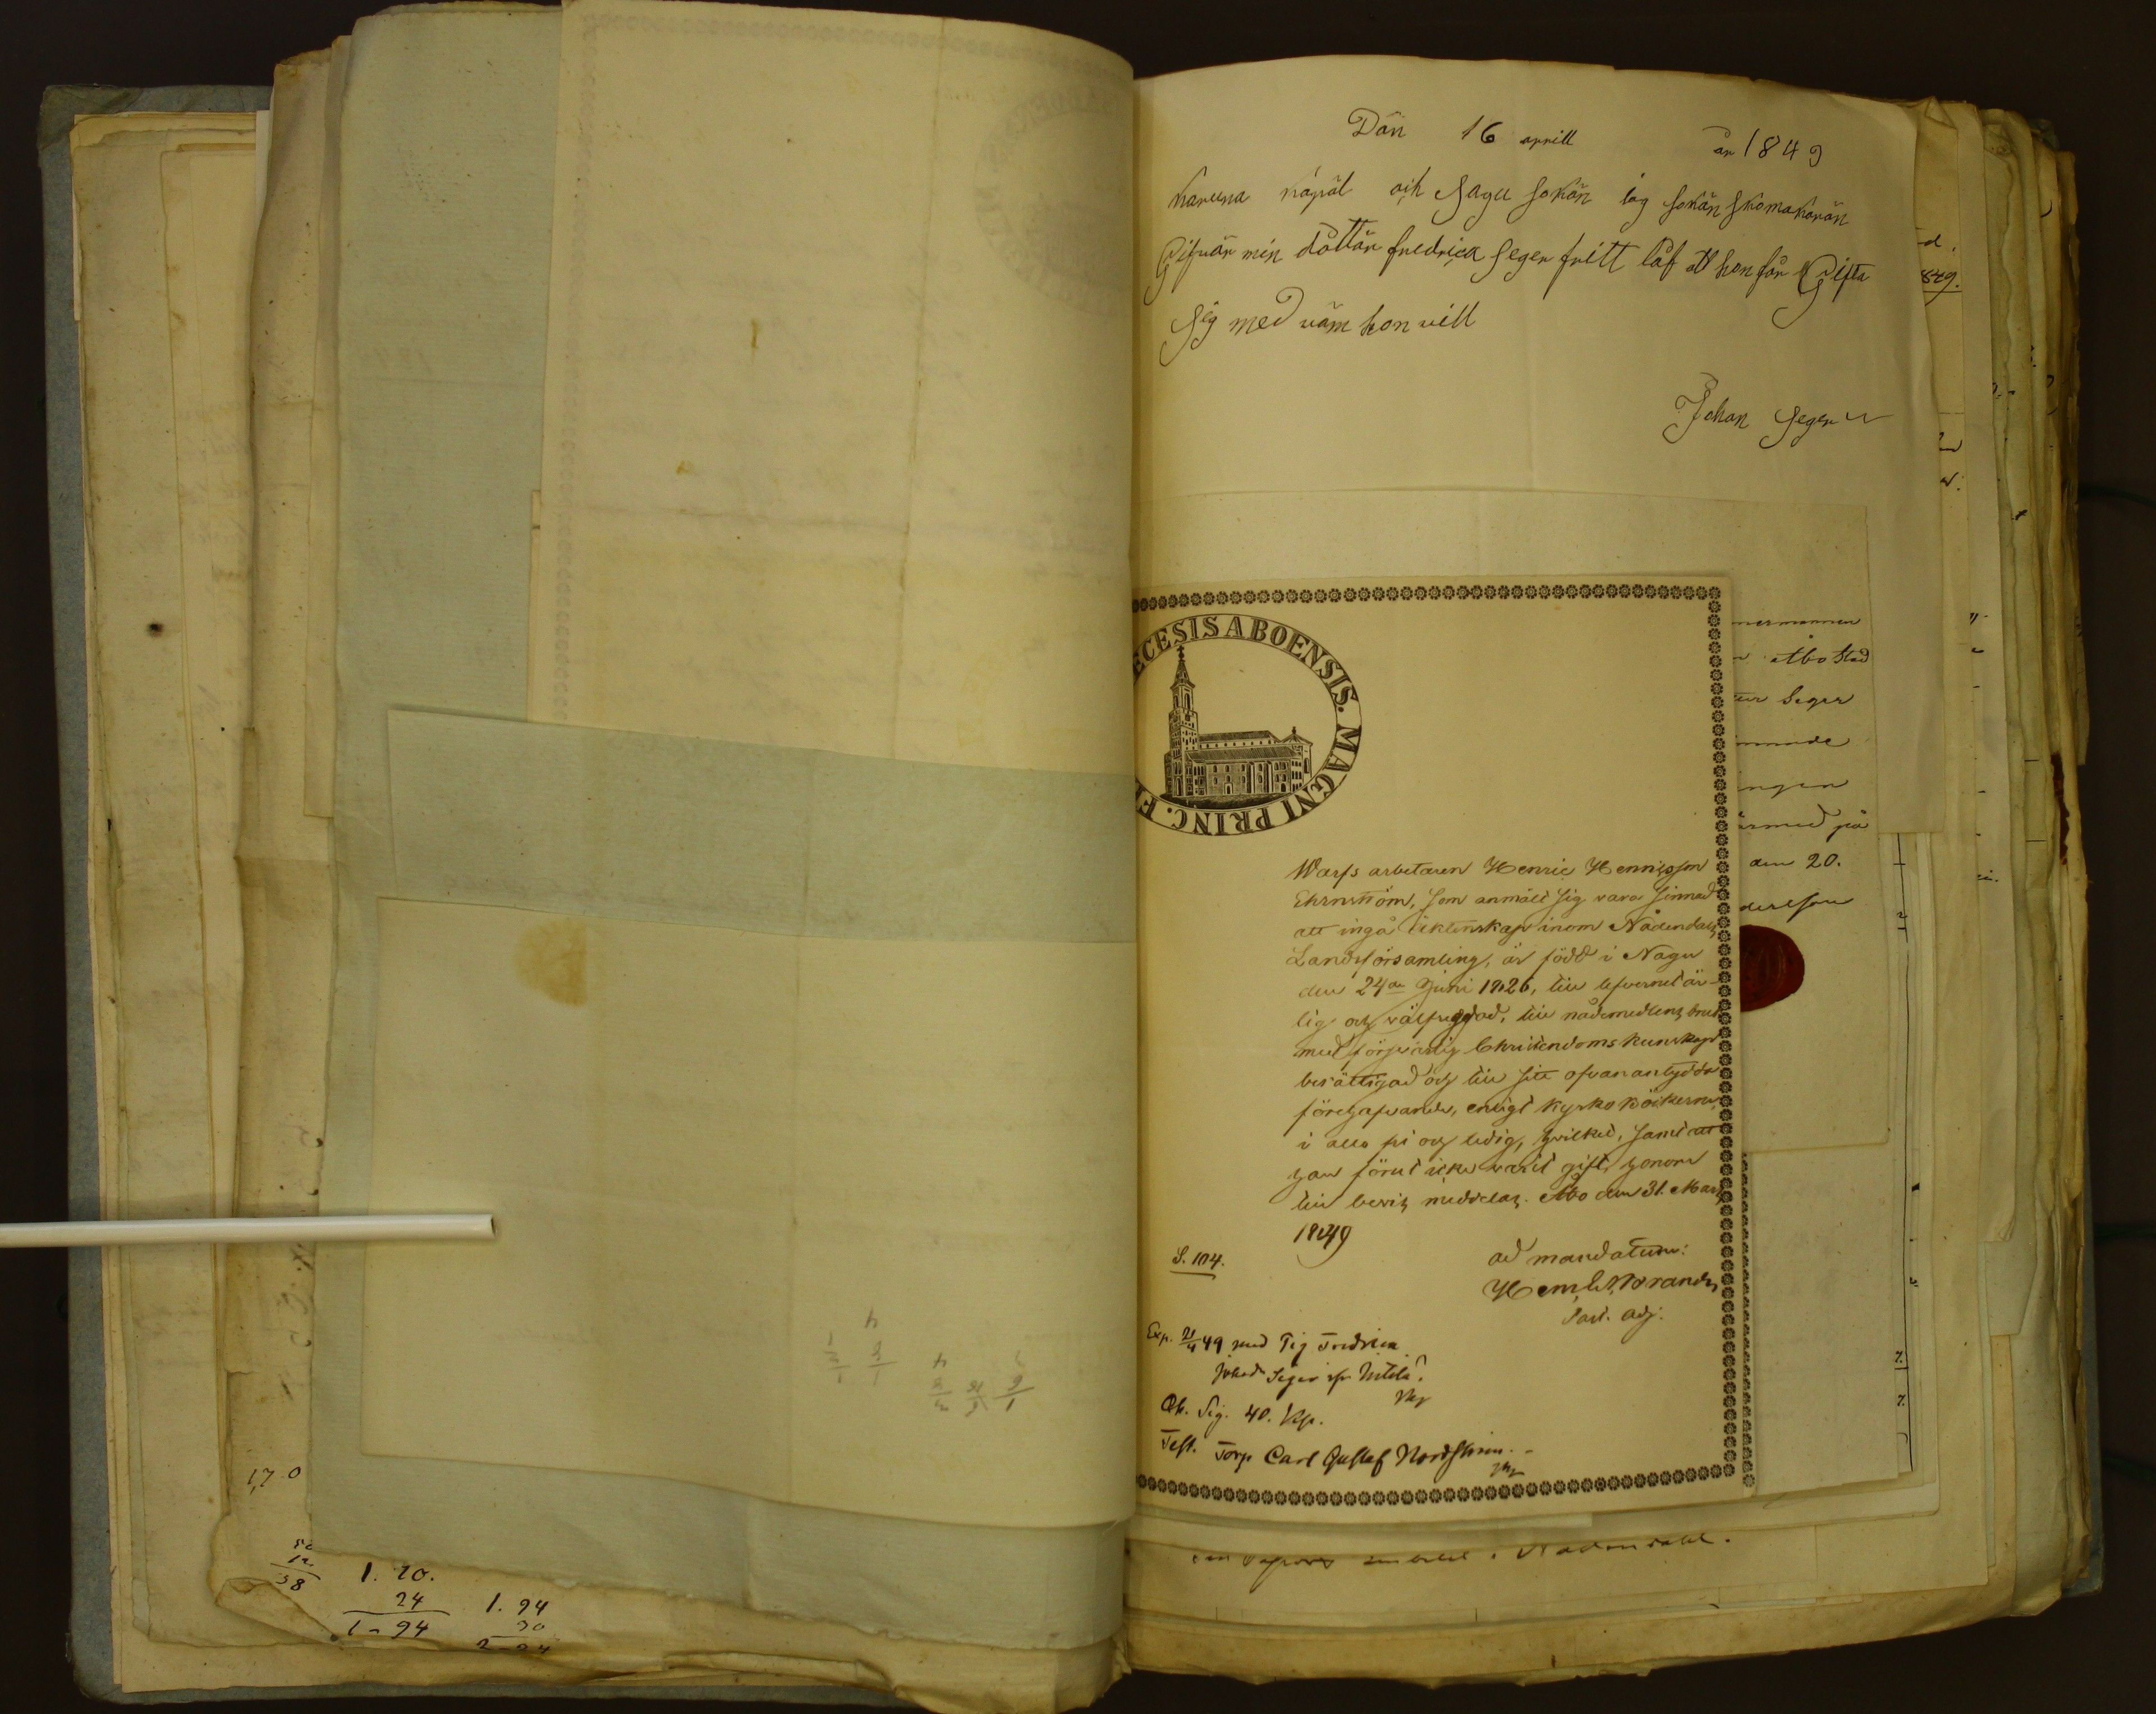 Dän 16 aprill år 1849
karuna kapäl och Sagu sokän iag sokän skomakarän
Gifvär min dottär fredrica Seger fritt låf att hon får Gifta
Sig med väm hon vill
Johan Seger
849.
ECESIS ABOENSIS. MAGNI PRINC. FI
Warfs arbetaren Henric Henricsson
Ehrnström, som anmält sig vara sinnad
att ingå äktenskap inom Nådendals
Landsförsamling, är född i Nagu
den 24de Juni 1826, till lefvernet är-
lig och välfrejdad, till nådemedlens bruk
med försvarlig Christendoms kunskap
berättigad och till sitt ofvanantydda
företagande, enligt kyrkoböckerne,
i allo fri och ledig, hvilket, samt att
han förut icke varit gift, honom
till bevis meddelas. Åbo den 31. Mars
1849
S. 104.
ad mandatum:
Past. adj.
Exp. 21/4 49 med Pig Fredrica
Johansdr Seger ifr
Ob. Sig. 40. kp.
Test. Torp. Carl Gustaf Nordström.
Åbo Stad
Seger
ingen
ärmed på
den 20.
17 0
12
38
1. 70.
24
1 - 94
1. 94
30
2 - 24